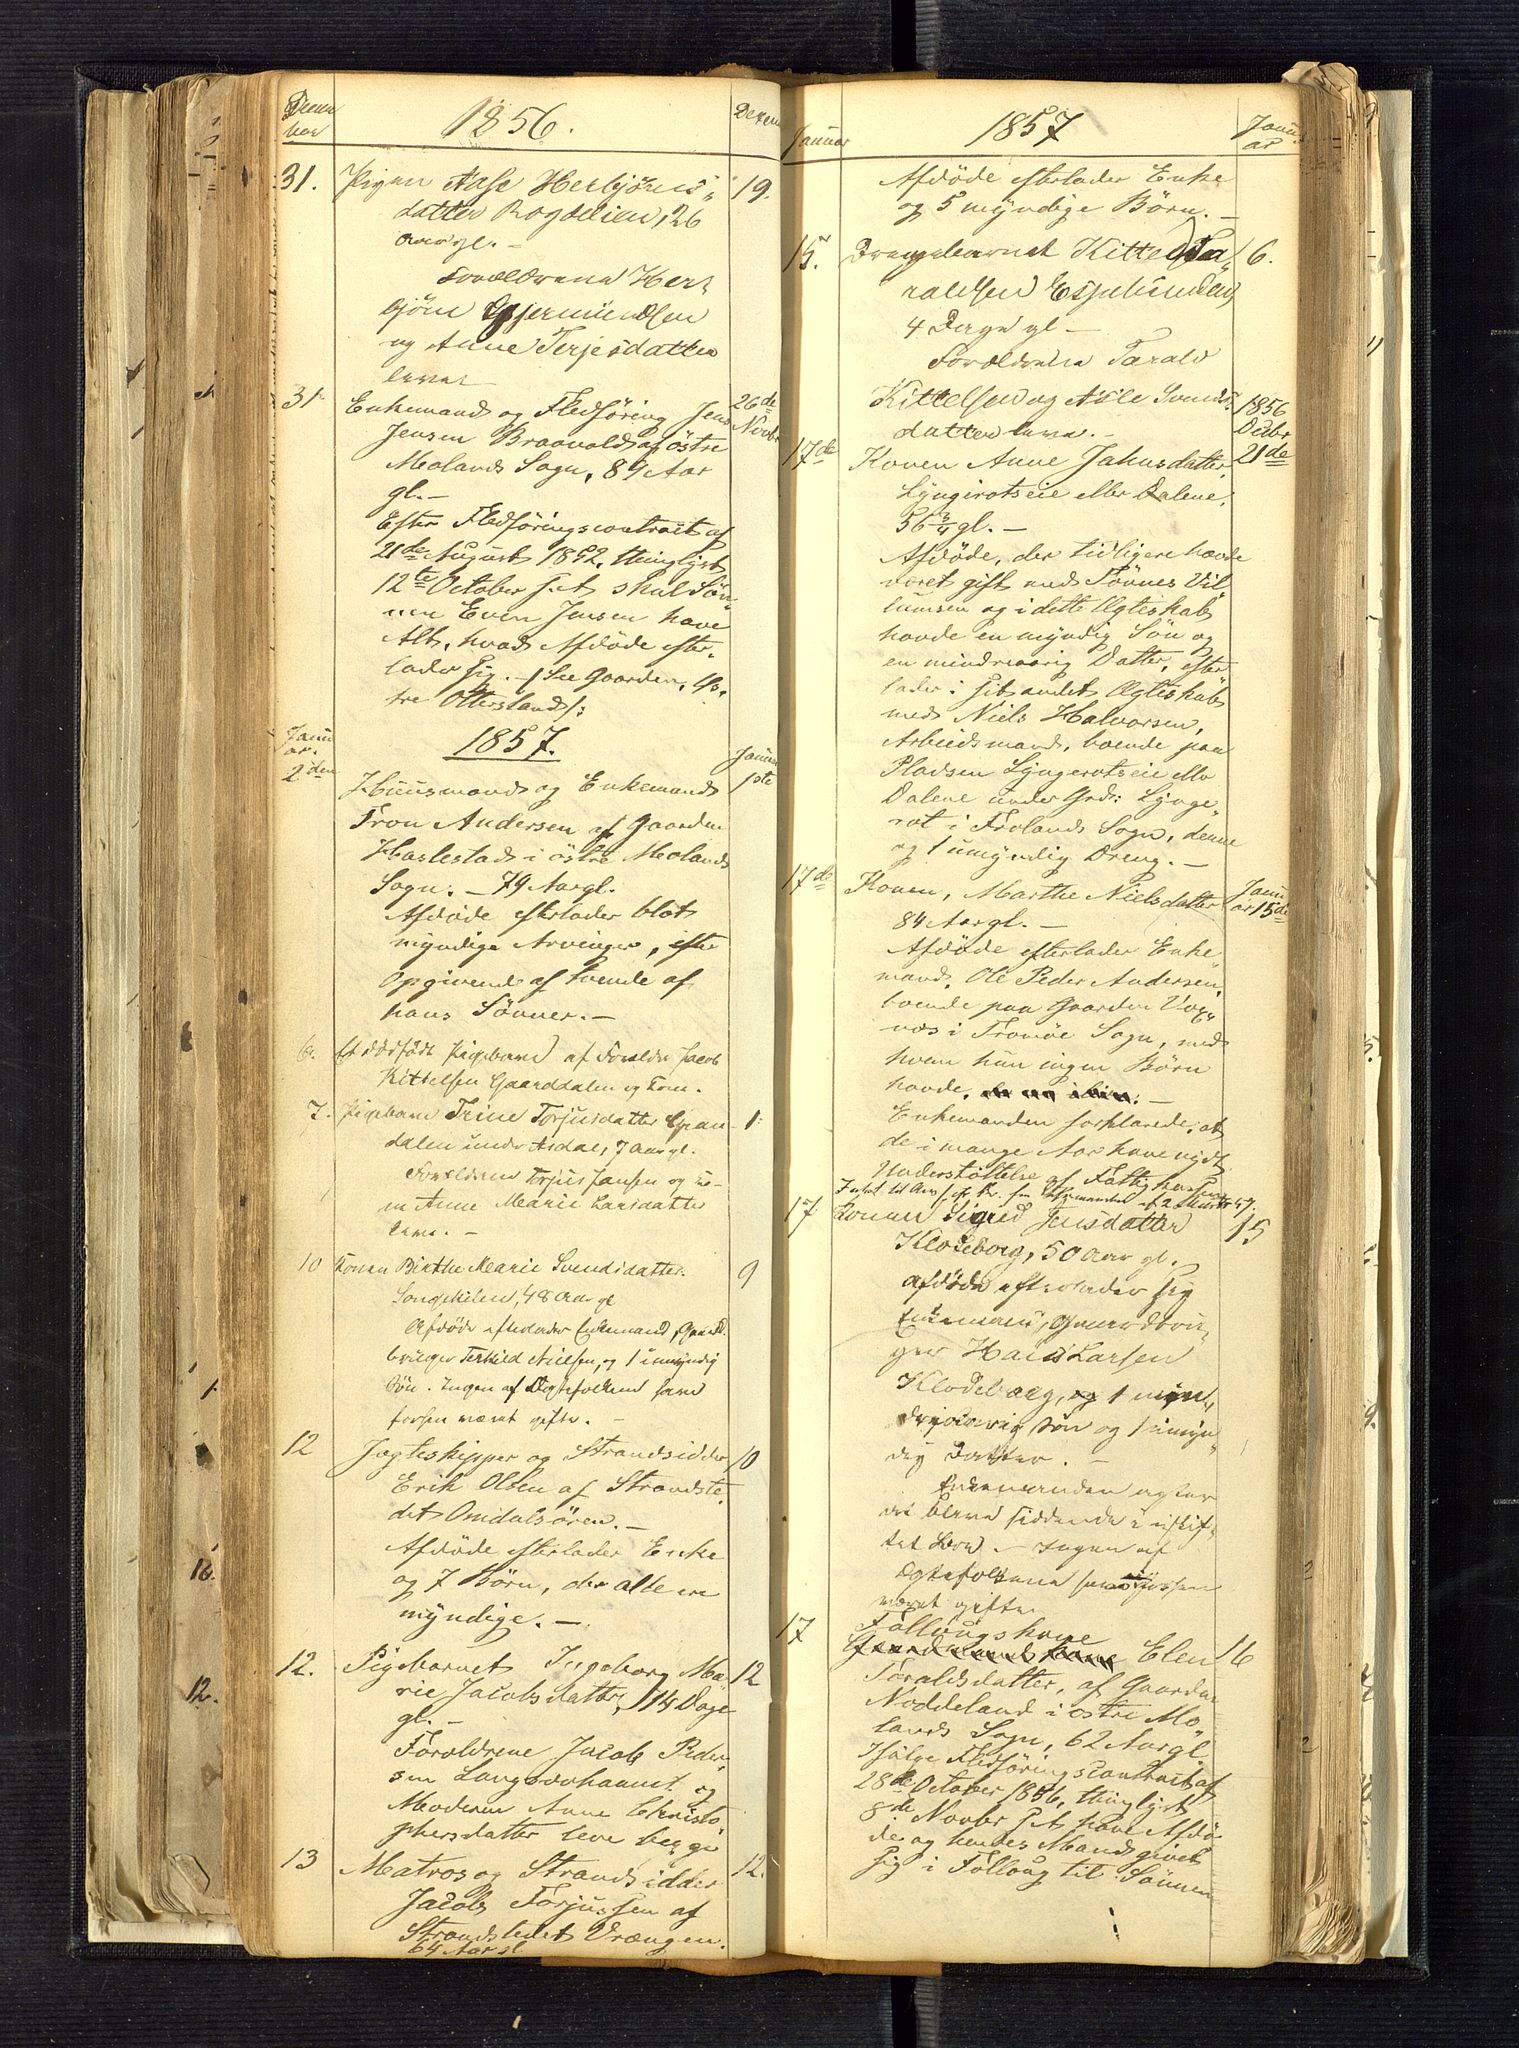 Decem
ber
1856.
Decem
31. Pigen Aase Herbjörns- 19.
datter Bogdelien, 26
Aar gl. –
Forældrene Her-
björn Gjermundsen
og Anne Terjesdatter
lever
31. Enkemand og Flædföring Jens 26de Novbr
Jensen Braavold af östre
Molands Sogn, 89 Aar
gl. –
Efter Flædföringscontract af
21de August 1852, thinglyst
12te October s. A. skal Søn-
nen Even Jensen have
Alt, hvad Afdöde efter-
lader sig. – /: See Gaarden,
tre Otterslands/:
1857.
Januar
2den Huusmand og Enkemand Januar 1ste
Tron Andersen af Gaarden
Haslestad i östre Molands
Sogn. – 79 Aar gl.
Afdöde efterlader blot
myndige Arvinger, efter
Opgivende af tvende af
hans Sönner. –
6. Et dødfödt Pigebarn af Forældre Jacob
Kittelsen Gaarddalen og Kone.
7. Pigebarn Trine Torjusdatter Gran- 1.
dalen under Asdal, 7 Aar gl.
Forældrene Torjus Jansen og
Anne Marie Larsdatter
leve. –
10 Konen Birthe Marie Svendsdatter 9
Songekilen, 48 Aar gl
Afdöde efterlader Enkemand, Gaard-
bruger Terkild Nielsen, og 1 umyndig
Sön. Ingen af Ægtefolkene have
forhen været gifte. –
12 Jagteskipper og Strandsidder 10
Erik Olsen af Strandste-
det Omdalsören. –
Afdöde efterlader Enke
og 7 Börn, der alle ere
myndige. –
12. Pigebarnet Ingeborg Ma- 12
rie Jacobsdatter, 14 Dage
gl. –
Forældrene Jacob Peder-
sen og
Moderen Anne Christo-
phersdatter leve begge
13 Matros og Strandsidder 12.
Jacob Torjussen af
Strandstedet Vrængen.
64 Aar gl
Januar
1857
Janu-
ar
Afdöde efterlader Enke
og 5 myndige Börn. –
15. Drengebarnet Kittel Ta- 6.
raldsen Espelund,
4 Dage gl –
Forældrene Tarald
Kittelsen og Aase Svends-
datter leve. –
17de Konen Anne Jahnsdatter, 1856 Decbr 21de
Lyngrotseie eller Dalene,
56 3/4 gl. –
Afdöde, der tidligere havde
været gift med Tönnes Vil-
lumsen og i dette Ægteskab
havde en myndig Sön og
en mindreaarig Datter, efter-
lader i sit andet Ægteskab
med Niels Halvorsen,
Arbeidsmand, boende paa
Pladsen Lyngerotseie eller
Dalene under Grd: Lynge-
rot i Frolands Sogn, denne
og 1 umyndig Dreng. –
17de Konen, Marthe Nielsdatter Januar 15de
84 Aar gl. –
Afdöde efterlader Enke-
mand, Ole Peder Andersen,
boende paa Gaarden Vox-
næs i Tromöe Sogn, med
hvem hun ingen Börn
havde. –
Enkemanden forklarede, at
de i mange Aar have nydt
Understöttelse af Fattigkassen
17 Konen Sigrid Jensdatter 15
Klodeborg, 50 Aar gl.
Afdöde efterlader sig
Enkemand, Gaardbru-
ger Hans Larsen
Klodeborg, og 1 min-
dreaarig Sön og 1 umyn-
dig Datter. –
Enkemanden agter
at blive siddende i uskif-
tet Boe. – Ingen af
Ægtefolkene have forhen
været gifte.
17 Föllougskone Elen 16
Taraldsdatter, af Gaarden
Noddeland i östre Mo-
lands Sogn, 62 Aar gl.
Ifölge Flædföringscontract af
28de October 1856, thinglyst
8de Novbr s. A. have Afdö-
de og hendes Mand givet
sig i Fölloug til Sönnen